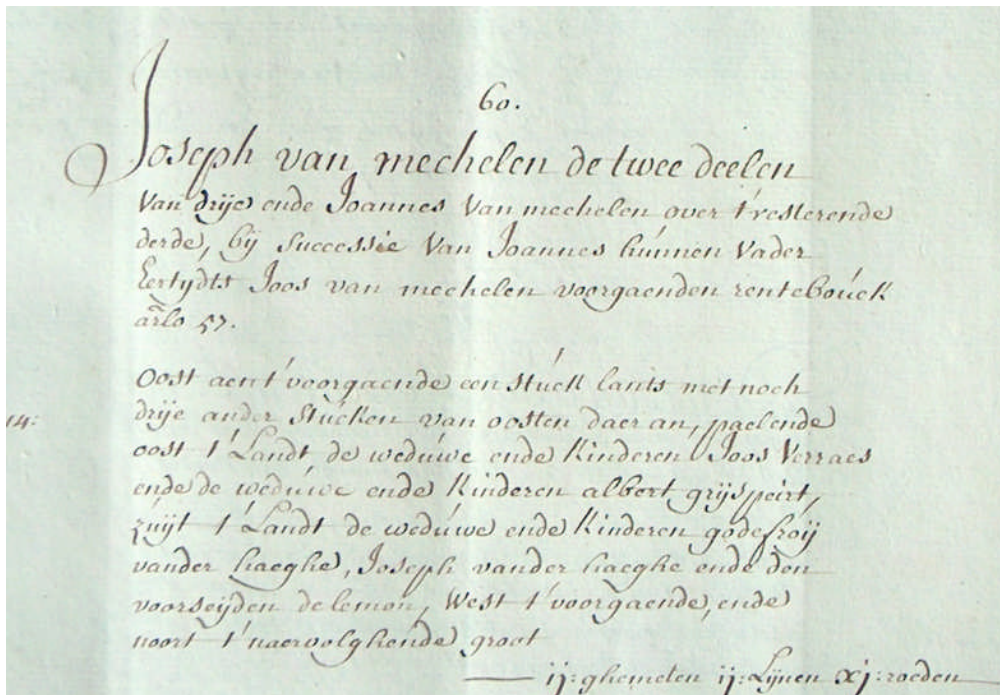 60.
Joseph van mechelen de twee deelen
van drije ende Joannes van mechelen over t'resterende
derde, bij successie van Joannes hunnen vader
Eertydts Joos van mechelen voorgaenden rentebouck
arlo 57.
oost aen t'voorgaende een stuck lants met noch
drije ander stucken van oosten daer an, paelende
14:
oost t'Landt de weduwe ende kinderen Joos Verraes
ende de weduwe ende kinderen albert grijspeirt,
zuijt t'Landt de weduwe ende kinderen godefroij
vander haeghe, Joseph vander haeghe ende den
voorseijden delemon, west t'voorgaende, ende
noort t'naervolghende groot
ij: ghemeten ij: Lijnen xj: roeden